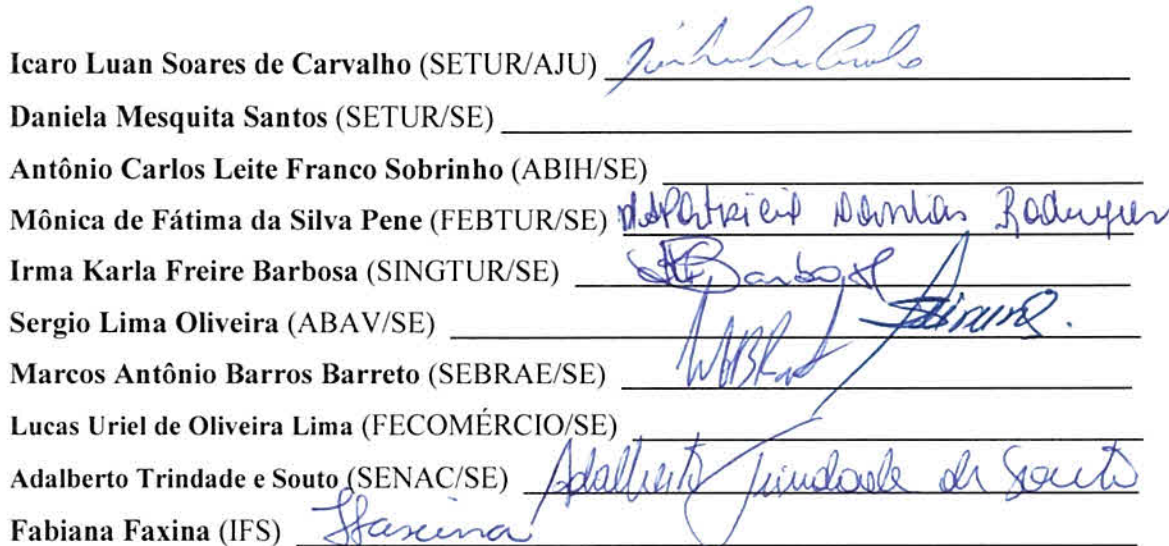 Icaro Luan Soares de Carvalho (SETUR/AJU)
Daniela Mesquita Santos (SETUR/SE)
Antônio Carlos Leite Franco Sobrinho (ABIH/SE)
Mônica de Fátima da Silva Pene (FEBTUR/SE) Rodrigues
Irma Karla Freire Barbosa (SINGTUR/SE) Barbosa
Sergio Lima Oliveira (ABAV/SE)
Marcos Antônio Barros Barreto (SEBRAE/SE)
Lucas Uriel de Oliveira Lima (FECOMÉRCIO/SE)
Adalberto Trindade e Souto (SENAC/SE) Adalberto Trindade de Souto
Fabiana Faxina (IFS) Ffaxina